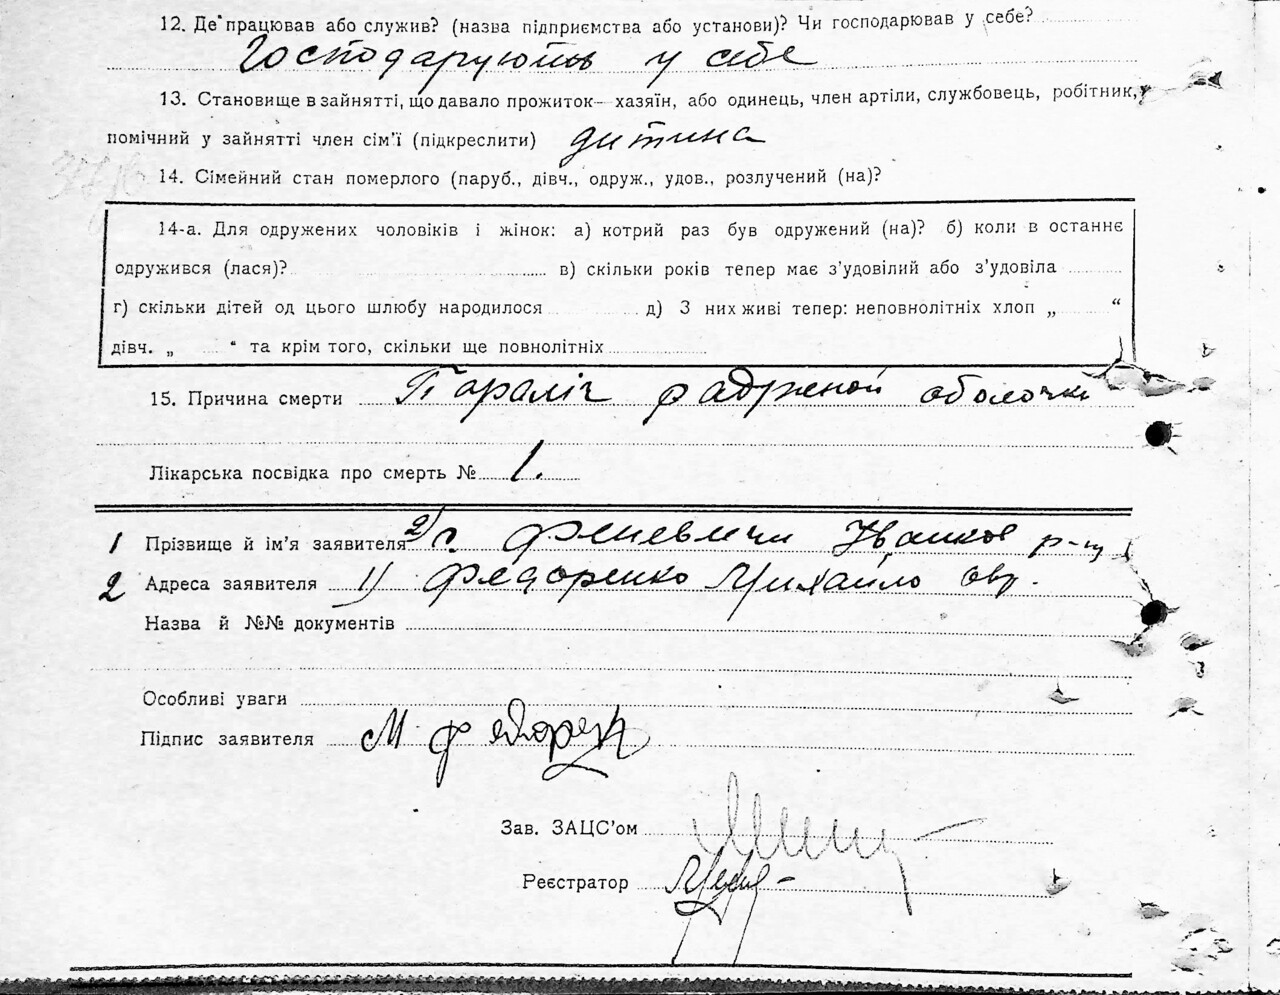 12. Де працював або служив? (назва підприємства або установи)? Чи господарював у себе?
Господарують у себе
13. Становище в зайнятті, що давало прожиток – хазяїн, або одинець, член артіли, службовець, робітник,
помічний у зайнятті член сім'ї (підкреслити) дитина
14. Сімейний стан померлого (паруб., дівч., одруж., удов., розлучений (на)?
14-а. Для одружених чоловіків і жінок: а) котрий раз був одружений (на)? б) коли в останнє
одружився (лася)? в) скільки років тепер має з'удовілий або з'удовіла
г) скільки дітей од цього шлюбу народилося д) З них живі тепер: неповнолітніх хлоп „ “
дівч. „ “ та крім того, скільки ще повнолітніх
15. Причина смерти Параліч оболочки
Лікарська посвідка про смерть № 1.
1 Прізвище й ім'я заявителя 2)
2 Адреса заявителя 1) Федоренко Михайло
Назва й №№ документів
Особливі уваги
Підпис заявителя М Федорен
Зав. ЗАЦС'ом
Реєстратор